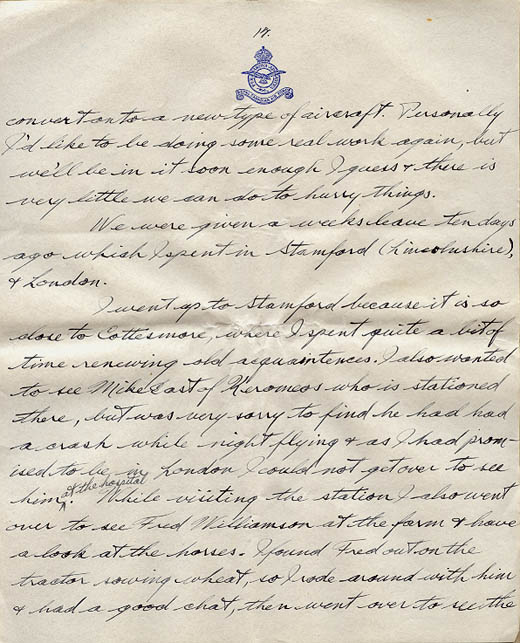 17.
convert onto a new type of aircraft. Personally
I'd like to be doing some real work again, but
we'll be in it soon enough I guess & there is
very little we can do to hurry things.
We were given a weeks leave ten days
ago which I spent in Stamford (Lincolnshire),
& London.
I went up to Stamford because it is so
close to Cottesmore, where I spent quite a bit of
time renewing old acquaintences. I also wanted
to see Mike Cast of Keromeos who is stationed
there, but was very sorry to find he had had
a crash while night flying & as I had prom-
ised to be in London I could not get over to see
him at the hospital. While visiting the station I also went
over to see Fred Williamson at the farm & have
a look at the horses. I found Fred out on the
tractor sowing wheat, so I rode around with him
& had a good chat, then went over to see the